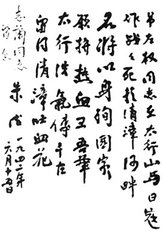 吊左权同志在太行山与日寇
作战战死于清漳河畔
名将以身殉国家
愿拼热血卫吾华
太行浩气传千古
留得清漳吐血花
朱德
一九四二年
六月十五日
志兰同志
留念